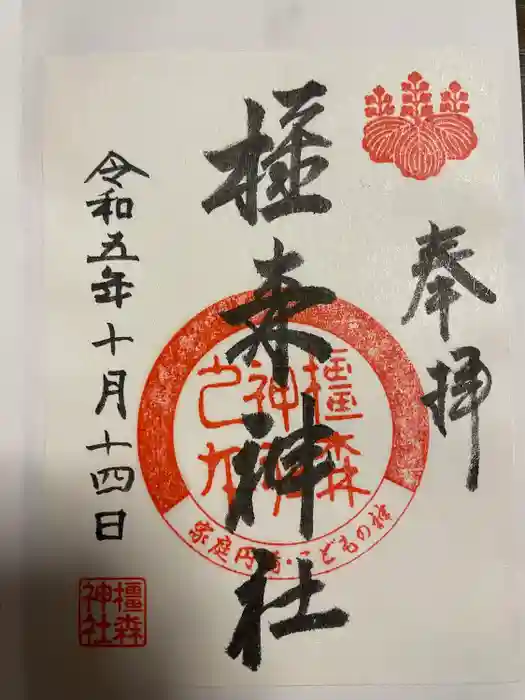 奉拝
橿森神社
橿森
神
家庭円満・こどもの神
令和五年十月十四日
橿森
神社